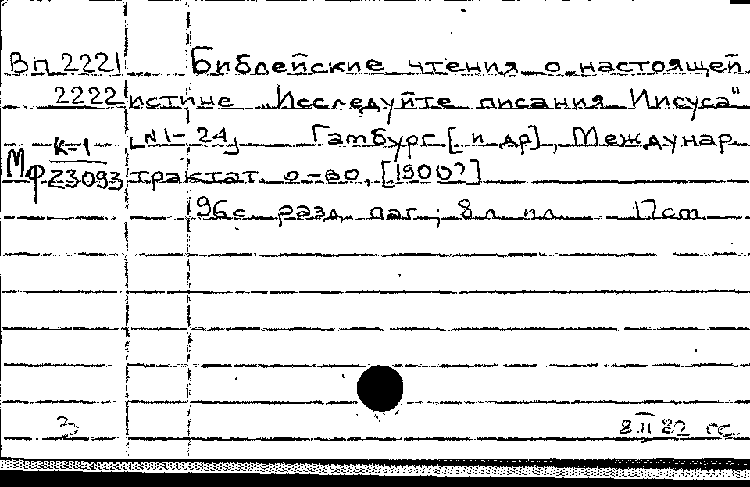 Вп 2221 Библейские чтения о настоящей
2222 истине „Исследуйте писания Иисуса"
К-1 [N 1-24] Гамбург [и др], Междунар
Мф 23093 трактат. о-во, [1900?]
96с разд паг; 8 л ил 17cm
3 8 II 82